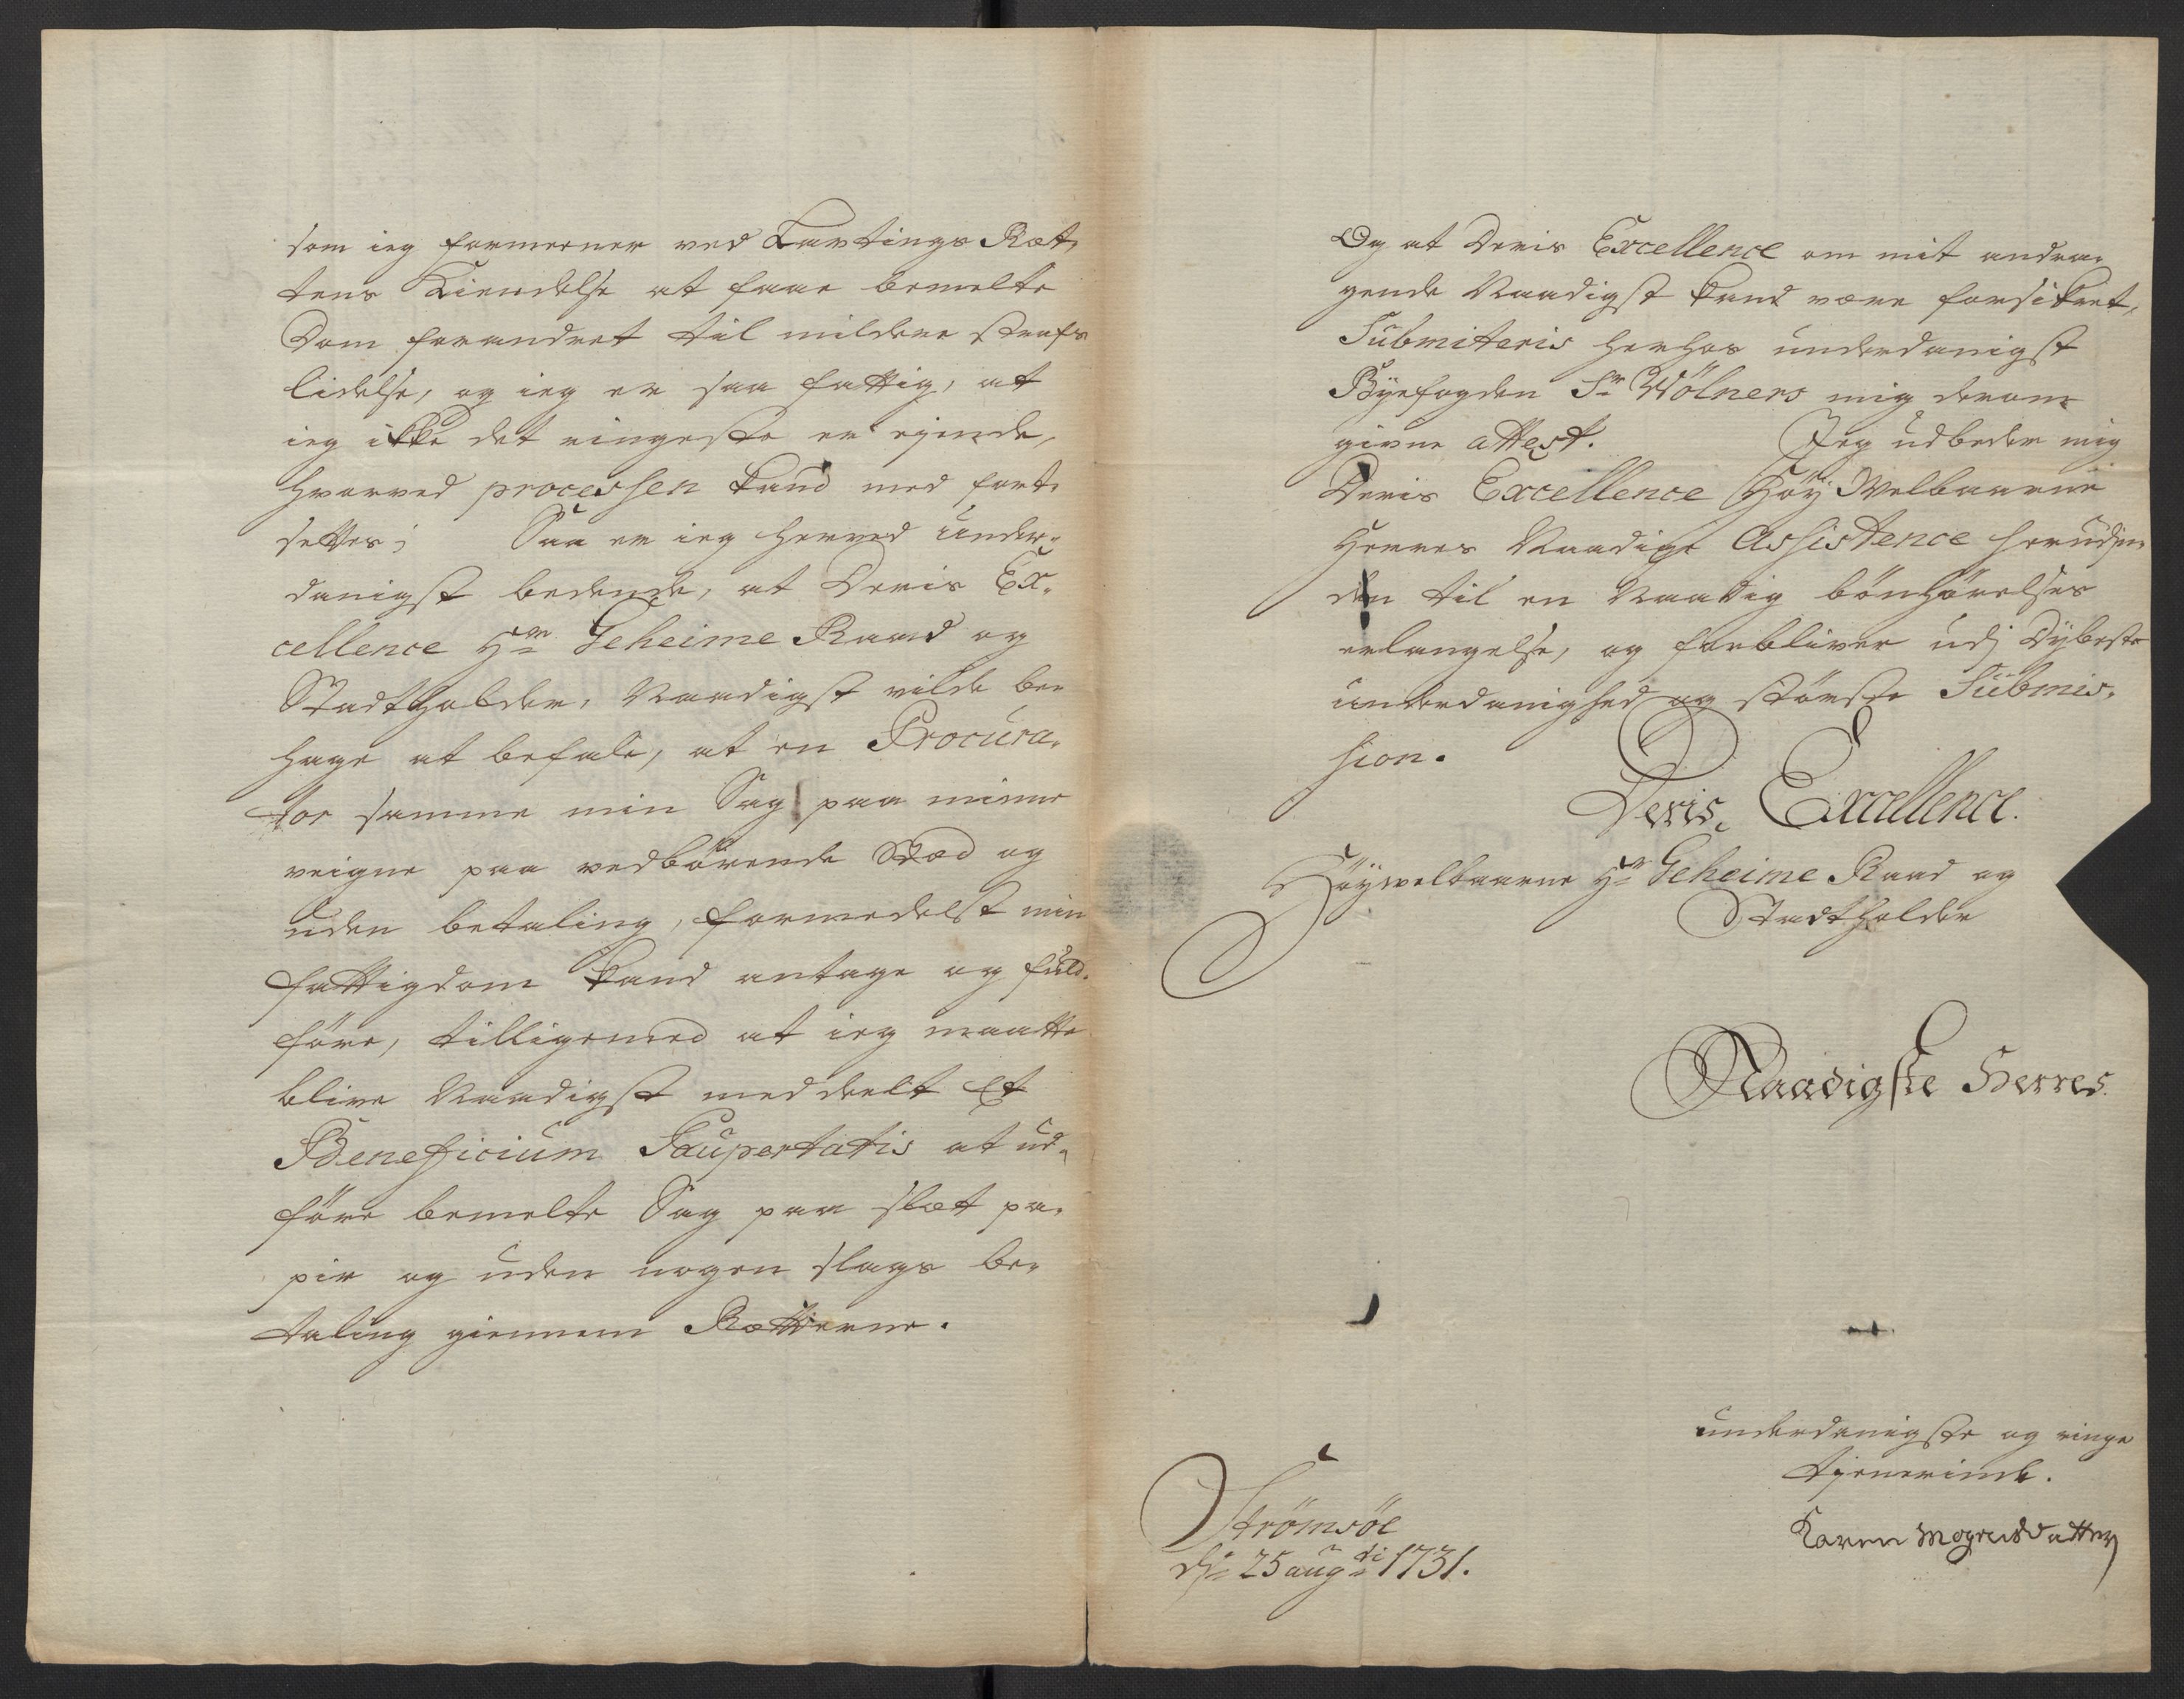 som ieg formeener ved Lavtings Ræt,
tens Kiendelse at faae bemelte
Dom forandret til mildere strafs
lidelse, og ieg er saa fattig, at
ieg ikke det ringeste er ejende,
hvorved processen kand med fort,
settes; Saa er ieg herved under,
danigst bedende, at Deris Ex,
cellence Hr Geheime Raad og
Stadtholder, Naadigst vilde be,
hage at befale, at en Procura,
tor samme min Sag paa minne
veigne paa vedbörende Stæd og
uden betaling, formedelst min
fattigdom kand antage og fuld,
före, tilligemed at ieg maatte
blive Naadigst meddeelt Et
Beneficium Paupertatis at ud,
före bemelte Sag paa slæt pa,
pir og uden nogen slags be,
taling giennem Rætterne.
Og at Deris Excellence om mit andra,
gende Naadigst kand være forsikret,
Submiteris herhos underdanigst
Byefogden Sr Wölners mig derom
givne attest. Jeg udbeder mig
Deris Excellence Höy Welbaarne
Herres Naadige Assistence herudjn,
den til en Naadig bönhörelses
erlangelse, og forbliver udj Dybeste
underdanighed og störste Submis,
sion.
Deris Excellence.
Höywelbaarne Hr Geheime Raad og
Stadtholder
Naadigste Herres
underdanigste og ringe
tjenerinde.
Karen Mognsdatter
Strömsöe
dn 25 augti 1731.